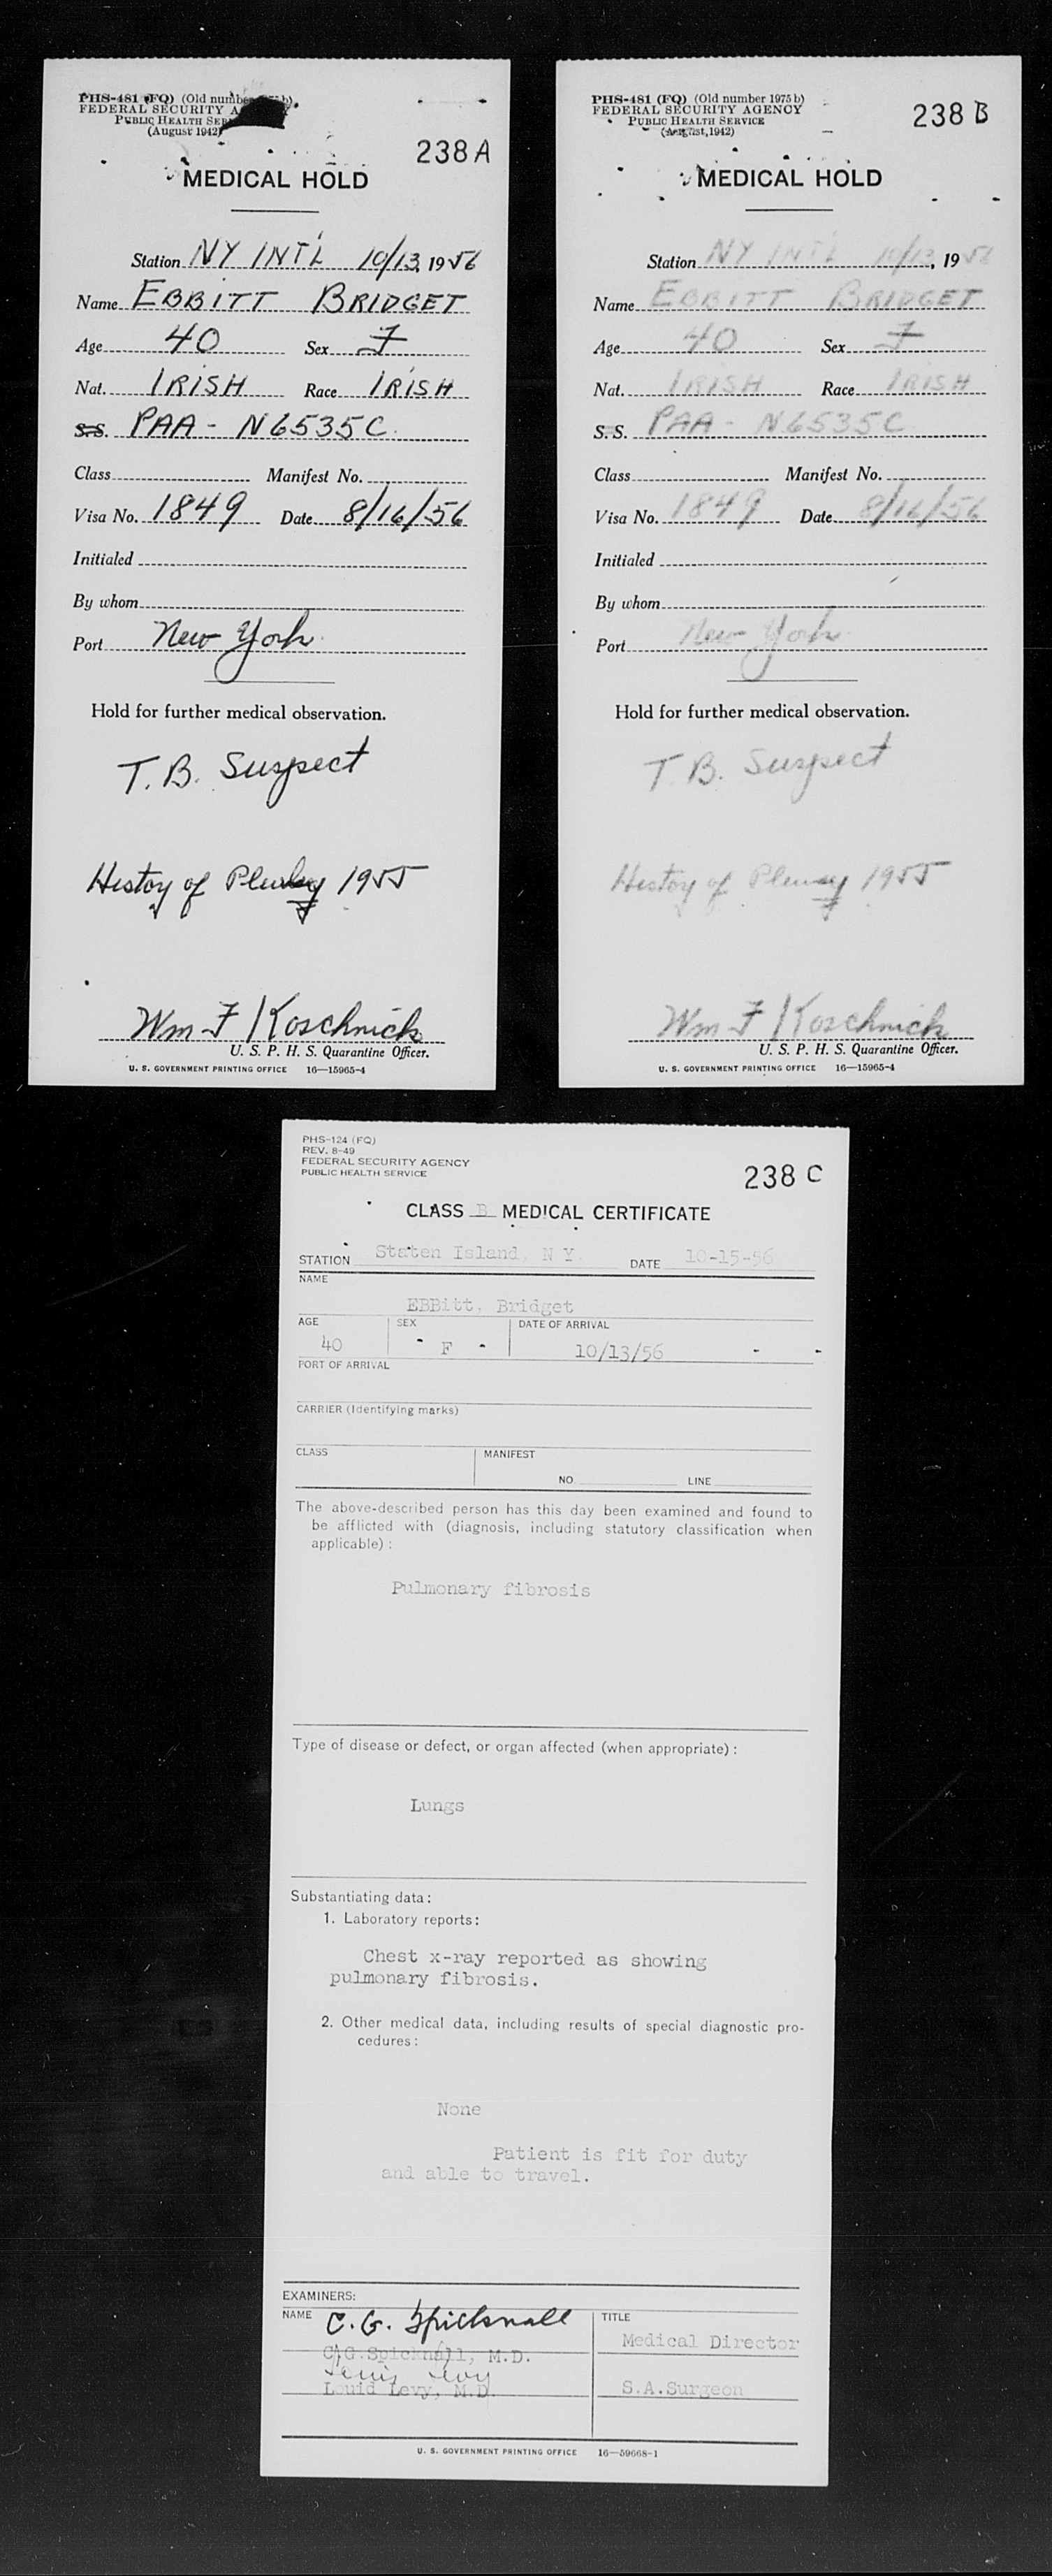 PHS-481 (FQ) (Old number b)
FEDERAL SECURITY A
PUBLIC HEALTH SER
(August 1942)
238 A
MEDICAL HOLD
Station NY INT'L 10/13, 1956
Name EBBITT BRIDGET
Age 40 Sex F
Nat. IRISH Race IRISH
S.S. PAA - N6535C
Class Manifest No.
Visa No. 1849 Date 8/16/56
Initialed
By whom
Port New York
Hold for further medical observation.
T.B. Suspect
Histoy of Pleurisy 1955
Wm F Koschnick
U. S. P. H. S. Quarantine Officer.
U. S. GOVERNMENT PRINTING OFFICE 16—15965-4
PHS-481 (FQ) (Old number 1975 b)
FEDERAL SECURITY AGENCY
PUBLIC HEALTH SERVICE
(August, 1942)
238 B
MEDICAL HOLD
Station NY INT'L 10/13, 1956
Name EBBITT BRIDGET
Age 40 Sex F
Nat. IRISH Race IRISH
S. S. PAA - N6535C
Class Manifest No.
Visa No. 1849 Date 8/16/56
Initialed
By whom
Port New York
Hold for further medical observation.
T.B. Suspect
Histoy of Pleurisy 1955
Wm F Koschnick
U. S. P. H. S. Quarantine Officer.
U. S. GOVERNMENT PRINTING OFFICE 16—15965-4
PHS-124 (FQ)
REV. 8-49
FEDERAL SECURITY AGENCY
PUBLIC HEALTH SERVICE
238 C
CLASS B MEDICAL CERTIFICATE
STATION Staten Island, N Y. DATE 10-15-56
NAME
EBBitt, Bridget
AGE SEX DATE OF ARRIVAL
40 F 10/13/56
PORT OF ARRIVAL
CARRIER (Identifying marks)
CLASS MANIFEST
NO. LINE
The above-described person has this day been examined and found to
be afflicted with (diagnosis, including statutory classification when
applicable) :
Pulmonary fibrosis
Type of disease or defect, or organ affected (when appropriate) :
Lungs
Substantiating data :
1. Laboratory reports :
Chest x-ray reported as showing
pulmonary fibrosis.
2. Other medical data, including results of special diagnostic pro-
cedures :
None
Patient is fit for duty
and able to travel.
EXAMINERS:
NAME C. G. Spicknall TITLE
C.G.Spicknall, M.D. Medical Director
Louis Levy
Louid Levy, M.D. S.A.Surgeon
U. S. GOVERNMENT PRINTING OFFICE 16—59668-1